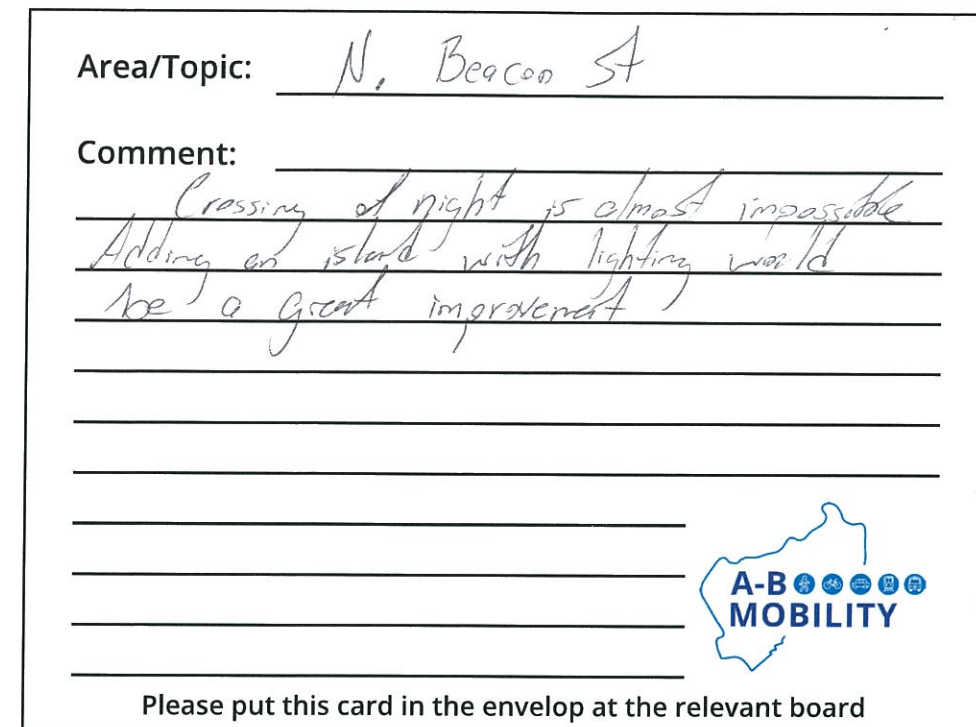 Area/Topic: N. Beacon St
Comment:
Crossing at night is almost impossible
Adding an island with lighting would
be a great improvement
A-B
MOBILITY
Please put this card in the envelop at the relevant board